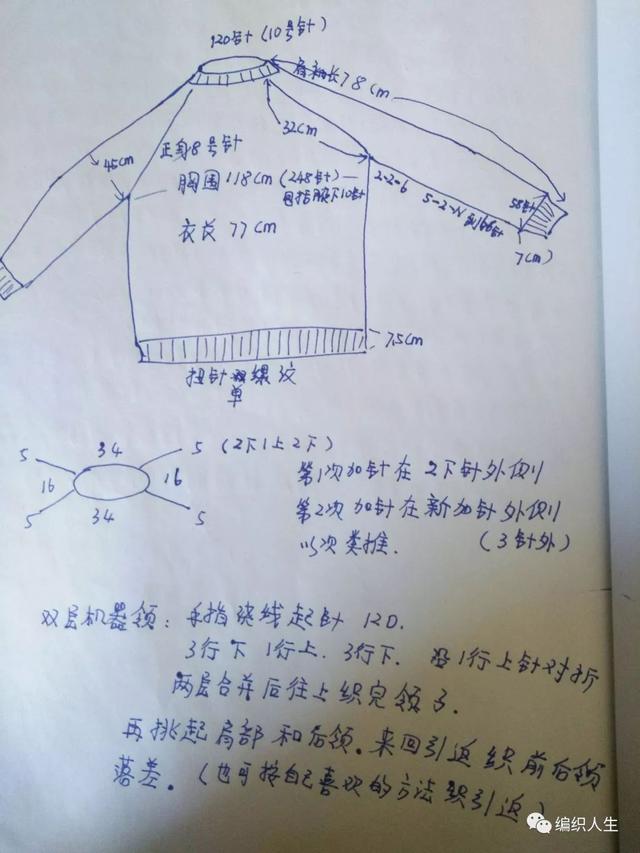 120针(10号针)
肩袖长78cm
32cm
45cm
正身8号针
胸围118cm(248针)
包括腋下10针
衣长77cm
2-2-6
5-2-N
到66针
58针
7cm)
7.5cm
扭针螺纹
单
5 34 5 (2下1上2下)
16 16
5 34 5
第1次加针在2下针外侧
第2次加针在新加针外侧
以次类推. (3针外)
双层机器领: 手指绕线起针120.
3行下1行上. 3行下. 沿1行上针对折
两层合并后往上织完领子.
再挑起肩部和后领.来回引返织前后领
落差。(也可按自己喜欢的方法织引返)
编织人生